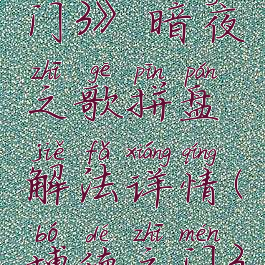 门3》暗夜
zhī gē pīn pán
之歌拼盘
jiě fǎ xiáng qíng
解法详情(
bó dé zhī mén
博德之门3